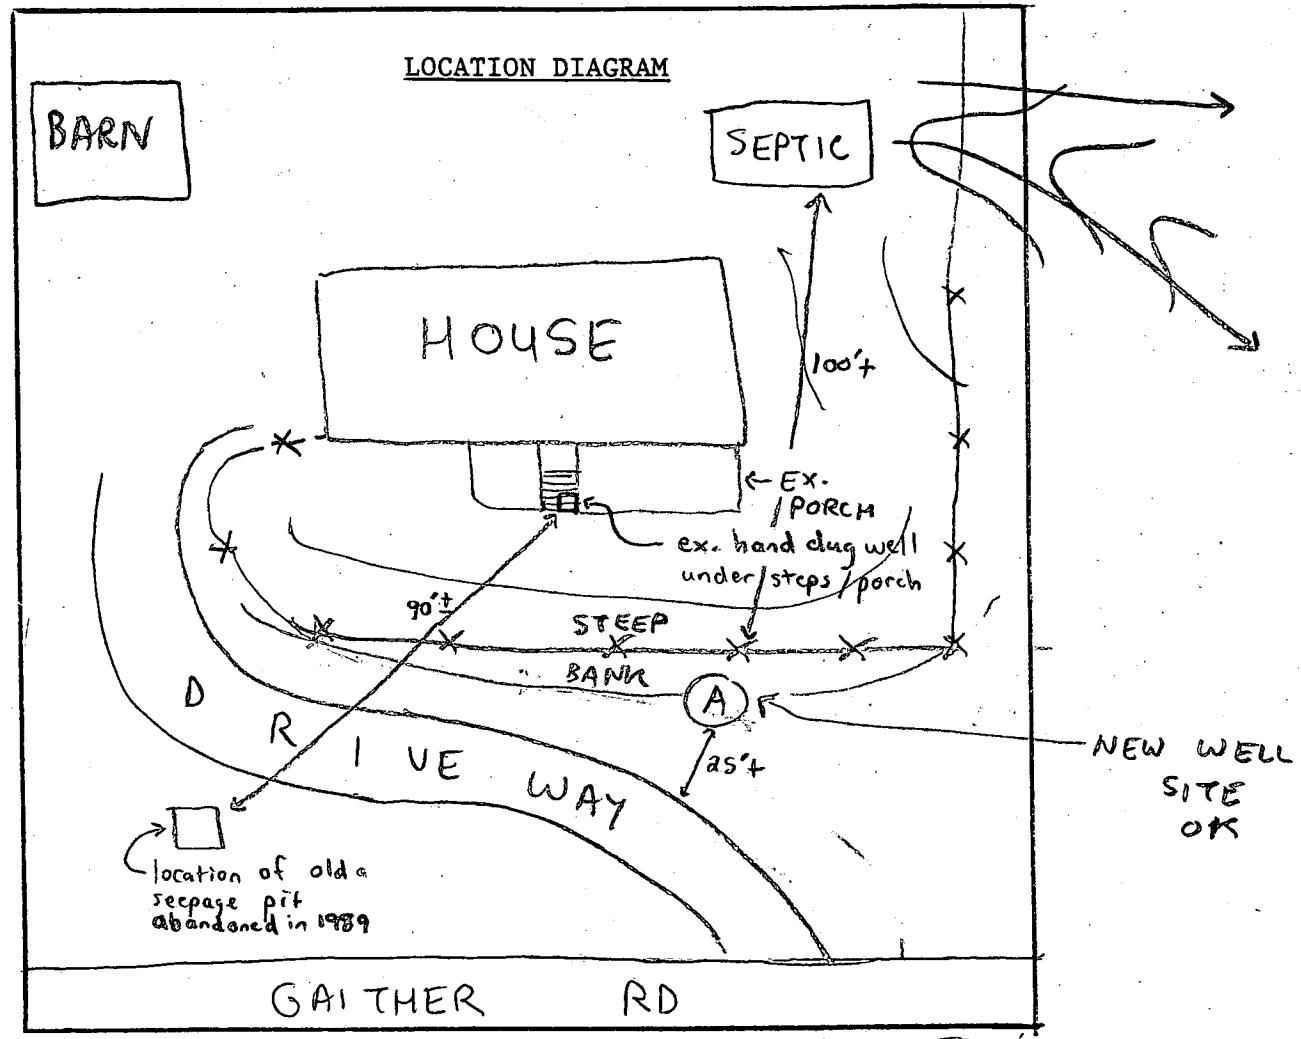 LOCATION DIAGRAM
BARN
SEPTIC
HOUSE
100'+
← EX.
PORCH
ex. hand dug well
under steps/porch
90'±
STEEP
BANK
A
NEW WELL
SITE
OK
25'+
DRIVE WAY
location of old
seepage pit
abandoned in 1989
GAITHER RD